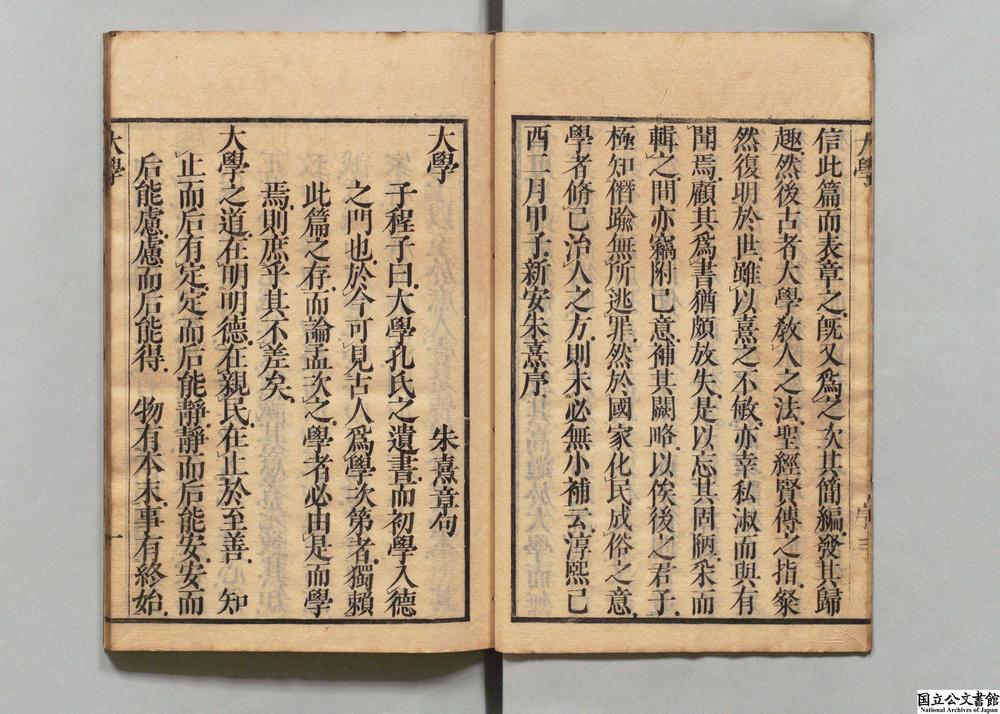 大學
信此篇而表章之既又爲之次其簡編發其歸
趣然後古者大學敎人之法聖經賢傳之指粲
然復明於世雖以熹之不敏亦幸私淑而與有
聞焉顧其爲書猶頗放失是以忘其固陋采而
輯之間亦竊附己意補其闕略以俟後之君子
極知僭踰無所逃罪然於國家化民成俗之意
學者脩己治人之方則未必無小補云淳熙己
酉二月甲子新安朱熹序
大學 朱熹章句
子程子曰大學孔氏之遺書而初學入德
之門也於今可見古人爲學次第者獨賴
此篇之存而論孟次之學者必由是而學
焉則庶乎其不差矣
大學之道在明明德在親民在止於至善 知
止而后有定定而后能靜靜而后能安安而
后能慮慮而后能得 物有本末事有終始
大學 一
国立公文書館
National Archives of Japan